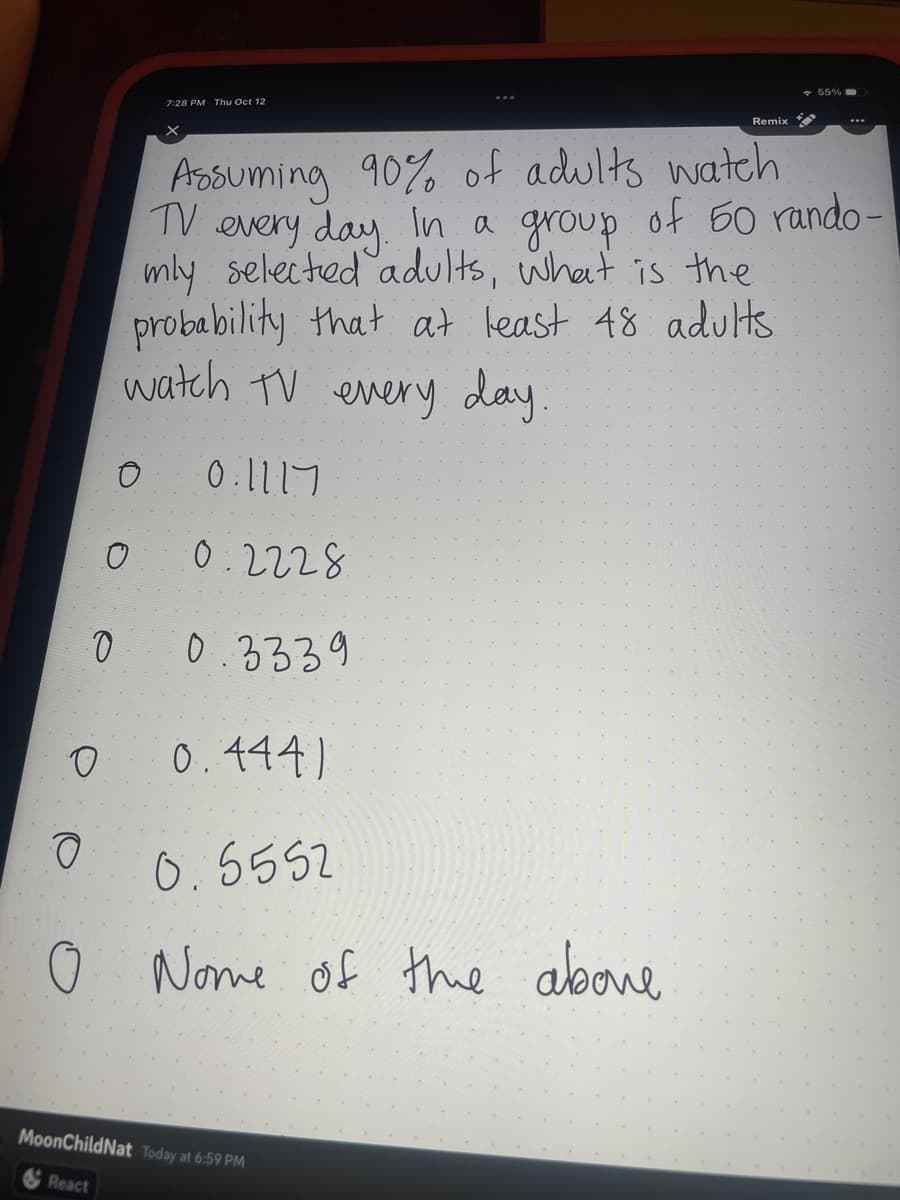 7:28 PM Thu Oct 12
55%
Remix
Assuming 90% of adults watch
TV every day. In a group of 50 rando-
mly selected adults, what is the
probability that at least 48 adults
watch TV every day.
0.1117
0.2228
0.3339
0.4441
0.5552
None of the above
MoonChildNat Today at 6:59 PM
React